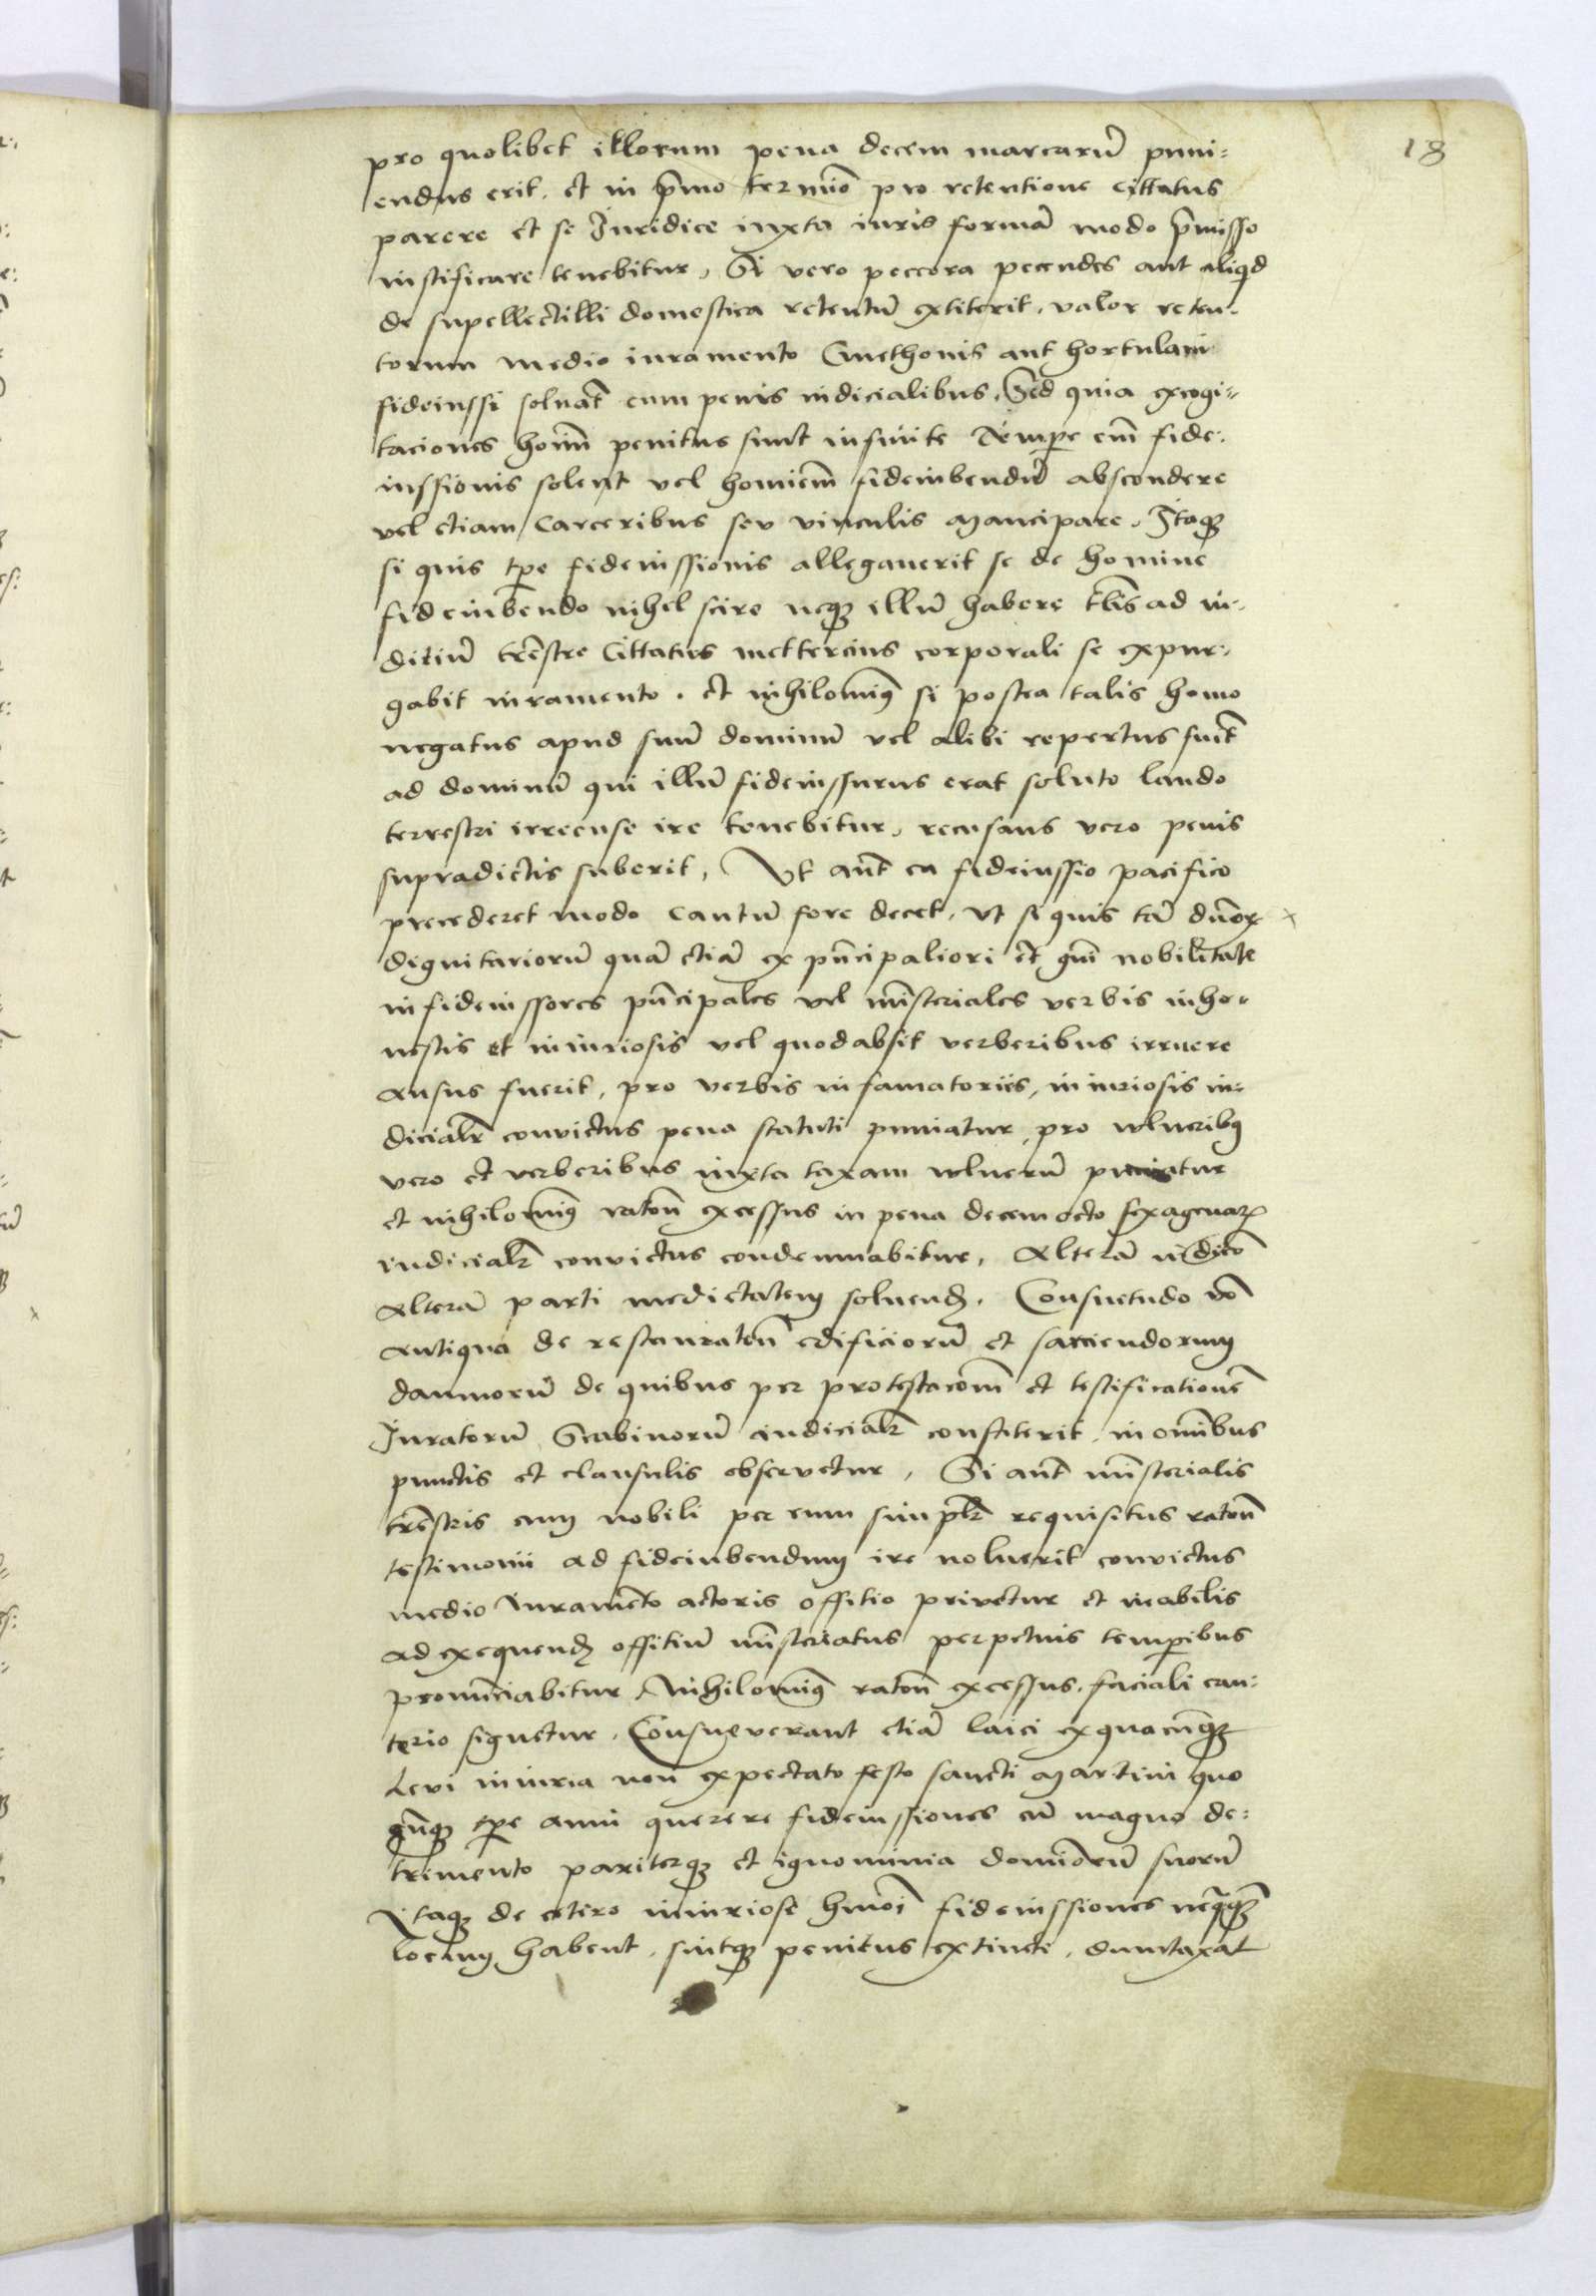 18
pro quolibet illorum pena decem marcarū puni=
endus erit. et in p̄mo termīo pro retentione cittatus
parere et se Juridice iuxta iuris formā modo p̄misso
iustificare tenebitur, Si vero peccora pecudes aut aliqd
de supellectilli domestica retentū extiterit, valor reten-
torum medio iuramento Cmethonis aut hortulani
fideiussi soluāt cum penis iudicialibus, Sed quia excogi=
taciones homī penitus sunt infinite Tempe em̄ fide-
iussionis solent vel homiem̄ fideiubendū abscondere
vel etiam Carceribus seu vinculis mancipare. Itaqꝫ
si quis tpe fideiussionis allegauerit se de homine
fideiubendo nihel scire neqꝫ illū habere tlis ad iu-
ditiū tr̄estre Cittatus mettercius corporali se expur-
gabit iuramento. et nihilomiꝰ si postea talis homo
negatus apud suū dominū vel alibi repertus fuīt
ad dominū qui illū fideiussurus erat soluto laudo
terrestri irrecuse ire tenebitur, recusans vero penis
supradictis suberit, Vt aūt ea fideiussio pacifico
precederet modo Cautū fore decet, vt si quis tā dn̄oꝝ ×
dignitariorū quā etiā ex pn̄cipaliori et gn̄i nobilitate
in fideiussores pn̄cipales vel mīsteriales verbis inho-
nestis et iniuriosis vel quod absit verberibus irruere
ausus fuerit, pro verbis infamatoriis, iniuriosis iu-
dicialr̄ convictus pena statuti puniatur, pro vlneribꝰ
vero et verberibus iuxta taxam vlnerū puniatur
et nihilomiꝰ ratōn excessus in pena decem octo sexagenaꝝ
iudicialr̄ convictus condemnabitur, Alterā iudico
Alterā parti medietatem soluendꝫ. Consuetudo vō
antiqua de restauratōn edificiorū et sarciendorum
damnorū de quibus per protestacōm et testificationē
Juratorū Scabinorū iudicialr̄ constiterit, in om̄ibus
punctis et clausulis obseruetur, Si aūt mīsterialis
tr̄estris cum nobili per eum simplr̄ requisitus ratōn
testimonii ad fideiubendum ire noluerit convictus
medio iuramēto actoris offitio privetur et inabilis
ad exequendꝫ offitiū mīsteriatus perpetuis temporibus
pronunciabitur, Nihilomiꝰ ratōn excessus, faciali cau-
terio signetur. Consueverant etiā laici ex quacūqꝫ
Levi iniuria non expectato festo sancti Martini quo
cūqꝫ tpe anni querere fideiussiones cū magno de=
trimento pariterqꝫ et ignominia dominorū suorū
Itaqꝫ de cetero iniuriose hmōi fideiussiones neqqꝫ
locum habent, sintqꝫ penitus extincte, dumtaxat